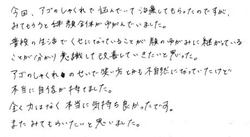 今回、アゴのしゃくれで悩んでいて治療してもらったのですが、
みてもらうと体・顔全体が歪んでいました。
普段の生活でくせになっていることが顔の歪みに継がっている
ことが分かり意識して改善していきたいと思った。
アゴのしゃくれのせいで笑い方も不自然になっていたけど
本当に自信が持てました。
全く力はなく本当に気持ち良かったです。
またみてもらいたいと思いました。